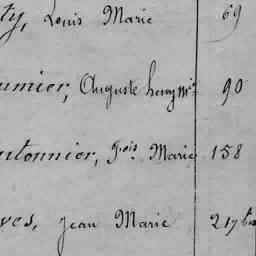 ty, Louis Marie 69
umier, Auguste henry Mie 90
utonnier, Fois Marie 158
ves, Jean Marie 217 bis